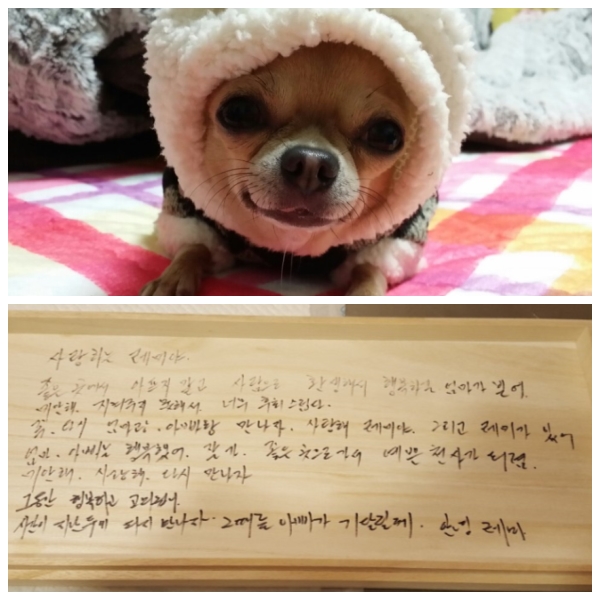 사랑하는 제이야.
좋은 곳에서 아프지 말고 사람으로 환생해서 행복하렴 엄마가 빌어.
미안해. 지켜주지 못해서 너의
꼭. 다시 엄마랑. 아빠랑 만나자. 사랑해 제이야. 그리고 제이가 있어
엄마. 아빠는 행복했어. 잘가. 좋은 곳으로가서 예쁜 천사가 되렴.
미안해. 사랑해. 다시 만나자
그동안 행복하고 고마웠어.
시간이 지난후에 다시 만나자. 그때는 아빠가 기다릴께. 안녕